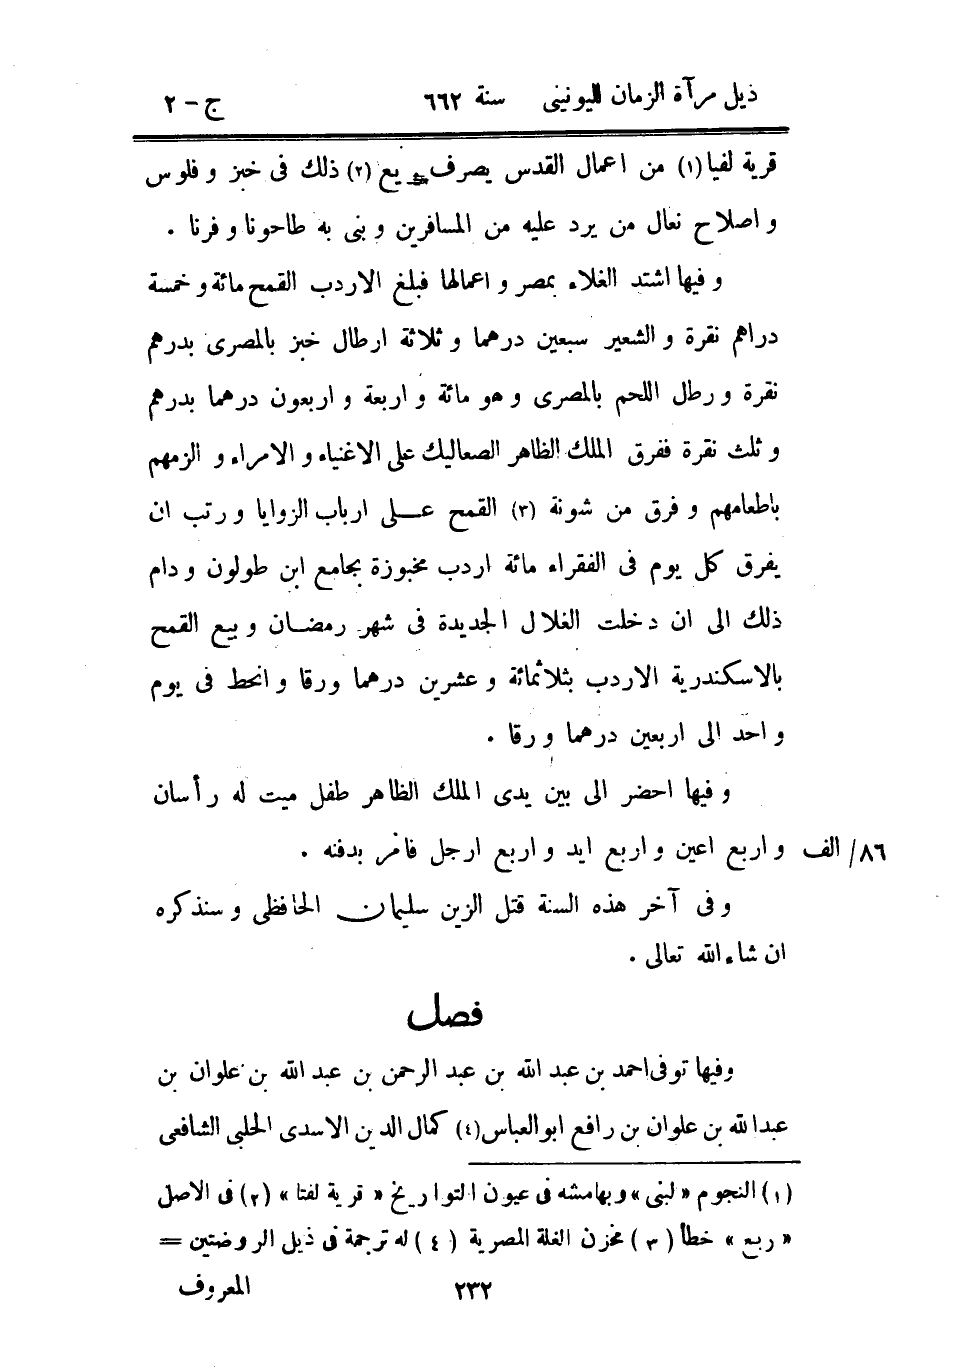 ذيل مرآة الزمان لليونينى    سنة ٦٦٢    ج - ٢
قرية لفيا (١) من اعمال القدس يصرف ريع (٢) ذلك فى خبز و فلوس
و اصلاح نعال من يرد عليه من المسافرين و بنى به طاحونا و فرنا .
و فيها اشتد الغلاء بمصر و اعمالها فبلغ الاردب القمح مائة و خمسة
دراهم نقرة و الشعير سبعين درهما و ثلاثة ارطال خبز بالمصرى بدرهم
نقرة و رطل اللحم بالمصرى و هو مائة و اربعة و اربعون درهما بدرهم
و ثلث نقرة ففرق الملك الظاهر الصعاليك على الاغنياء و الامراء و الزمهم
باطعامهم و فرق من شونة (٣) القمح على ارباب الزوايا و رتب ان
يفرق كل يوم فى الفقراء مائة اردب مخبوزة بجامع ابن طولون و دام
ذلك الى ان دخلت الغلال الجديدة فى شهر رمضان و بيع القمح
بالاسكندرية الاردب بثلاثمائة و عشرين درهما ورقا و انحط فى يوم
و احد الى اربعين درهما ورقا .
و فيها احضر الى بين يدى الملك الظاهر طفل ميت له رأسان
٨٦/ الف و اربع اعين و اربع ايد و اربع ارجل فامر بدفنه .
و فى آخر هذه السنة قتل الزين سليمان الحافظى و سنذكره
ان شاء الله تعالى .
فصل
وفيها توفى احمد بن عبد الله بن عبد الرحمن بن عبد الله بن علوان بن
عبد الله بن علوان بن رافع ابو العباس (٤) كمال الدين الاسدى الحلبى الشافعى
(١) النجوم « لبنى » و بهامشه فى عيون التواريخ « قرية لفتا » (٢) فى الاصل
« ربع » خطأ (٣) مخزن الغلة المصرية (٤) له ترجمة فى ذيل الروضتين =
٢٣٢    المعروف